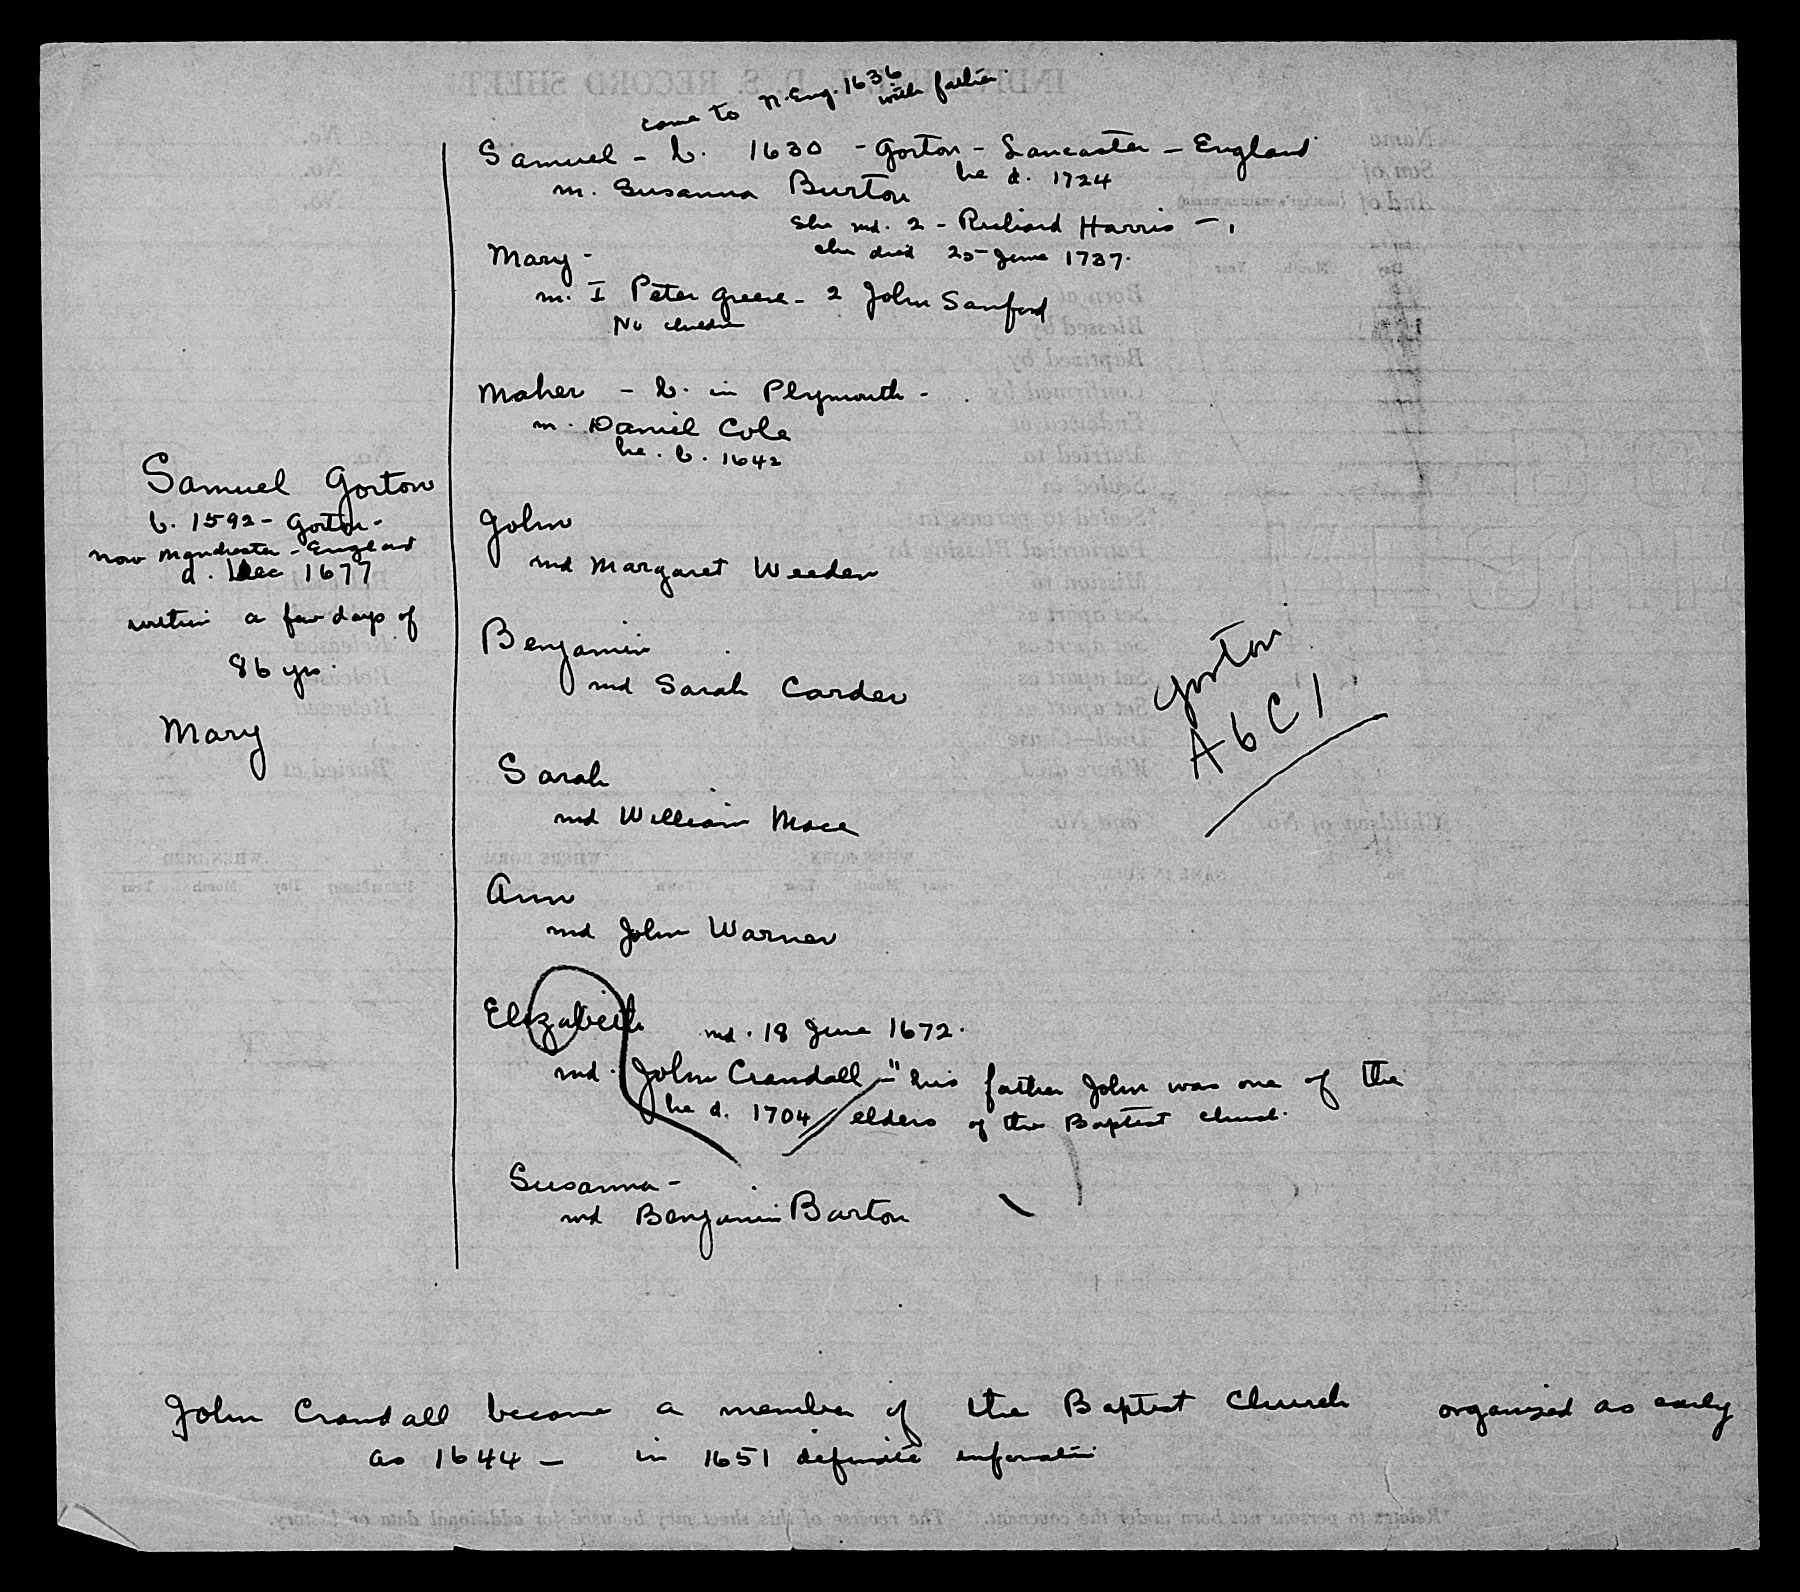 came to N. Eng. 1636
with father
Samuel - b. 1630 - Gorton - Lancaster - England
he d. 1724
m. Susanna Burton
She md. 2 - Richard Harris -
she died 25 June 1737.
Mary -
m. I Peter Greene - 2 John Sanford
No children
Maher - b. in Plymouth -
m. Daniel Cole
he. b. 1642
Samuel Gorton
b. 1592 - Gorton -
now Manchester - England
d. Dec 1677
within a few days of
86 yrs.
Mary
John
md Margaret Weeden
Benjamin
md Sarah Carder
Gorton
A6C1
Sarah
md William Mace
Ann
md John Warner
Elizabeth md. 18 June 1672.
md. John Crandall - "his father John was one of the
he d. 1704 elders of the Baptist church.
Susanna -
md Benjamin Barton
John Crandall became a member of the Baptist Church organized as early
as 1644 - in 1651 definite
INDIVIDUAL L. D. S. RECORD SHEET
Name
Son of
And of
No.
No.
No.
Born at
Blessed by
Baptized by
Confirmed by
Endowed at
Married to
No.
Sealed in
*Sealed to parents in
Patriarchal Blessing by
Mission to
Set apart as
Set apart as
Set apart as
Set apart as
Released
Released
Released
Released
Died—Cause
Where died
Buried at
Children of No.
and No.
NAME IN FULL
WHEN BORN
WHERE BORN
WHEN DIED
Day Month Year
Town
Day Month Year
*Relates to persons not born under the covenant. The reverse of this sheet may be used for additional data or history.